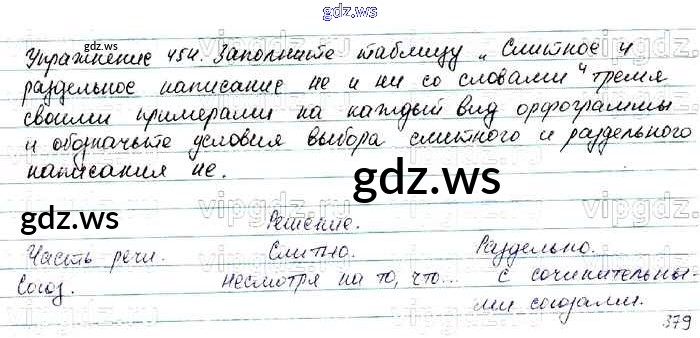 gdz.ws
Упражнение 454. Заполните таблицу „Слитное и
раздельное написание не и ни со словами“ тремя
своими примерами на каждый вид орфограммы
и обозначьте условия выбора слитного и раздельного
написания не.
gdz.ws
gdz.ws
Решение.
Часть речи. Слитно. Раздельно.
Союз. несмотря на то, что... с сочинительны-
ми союзами.
379